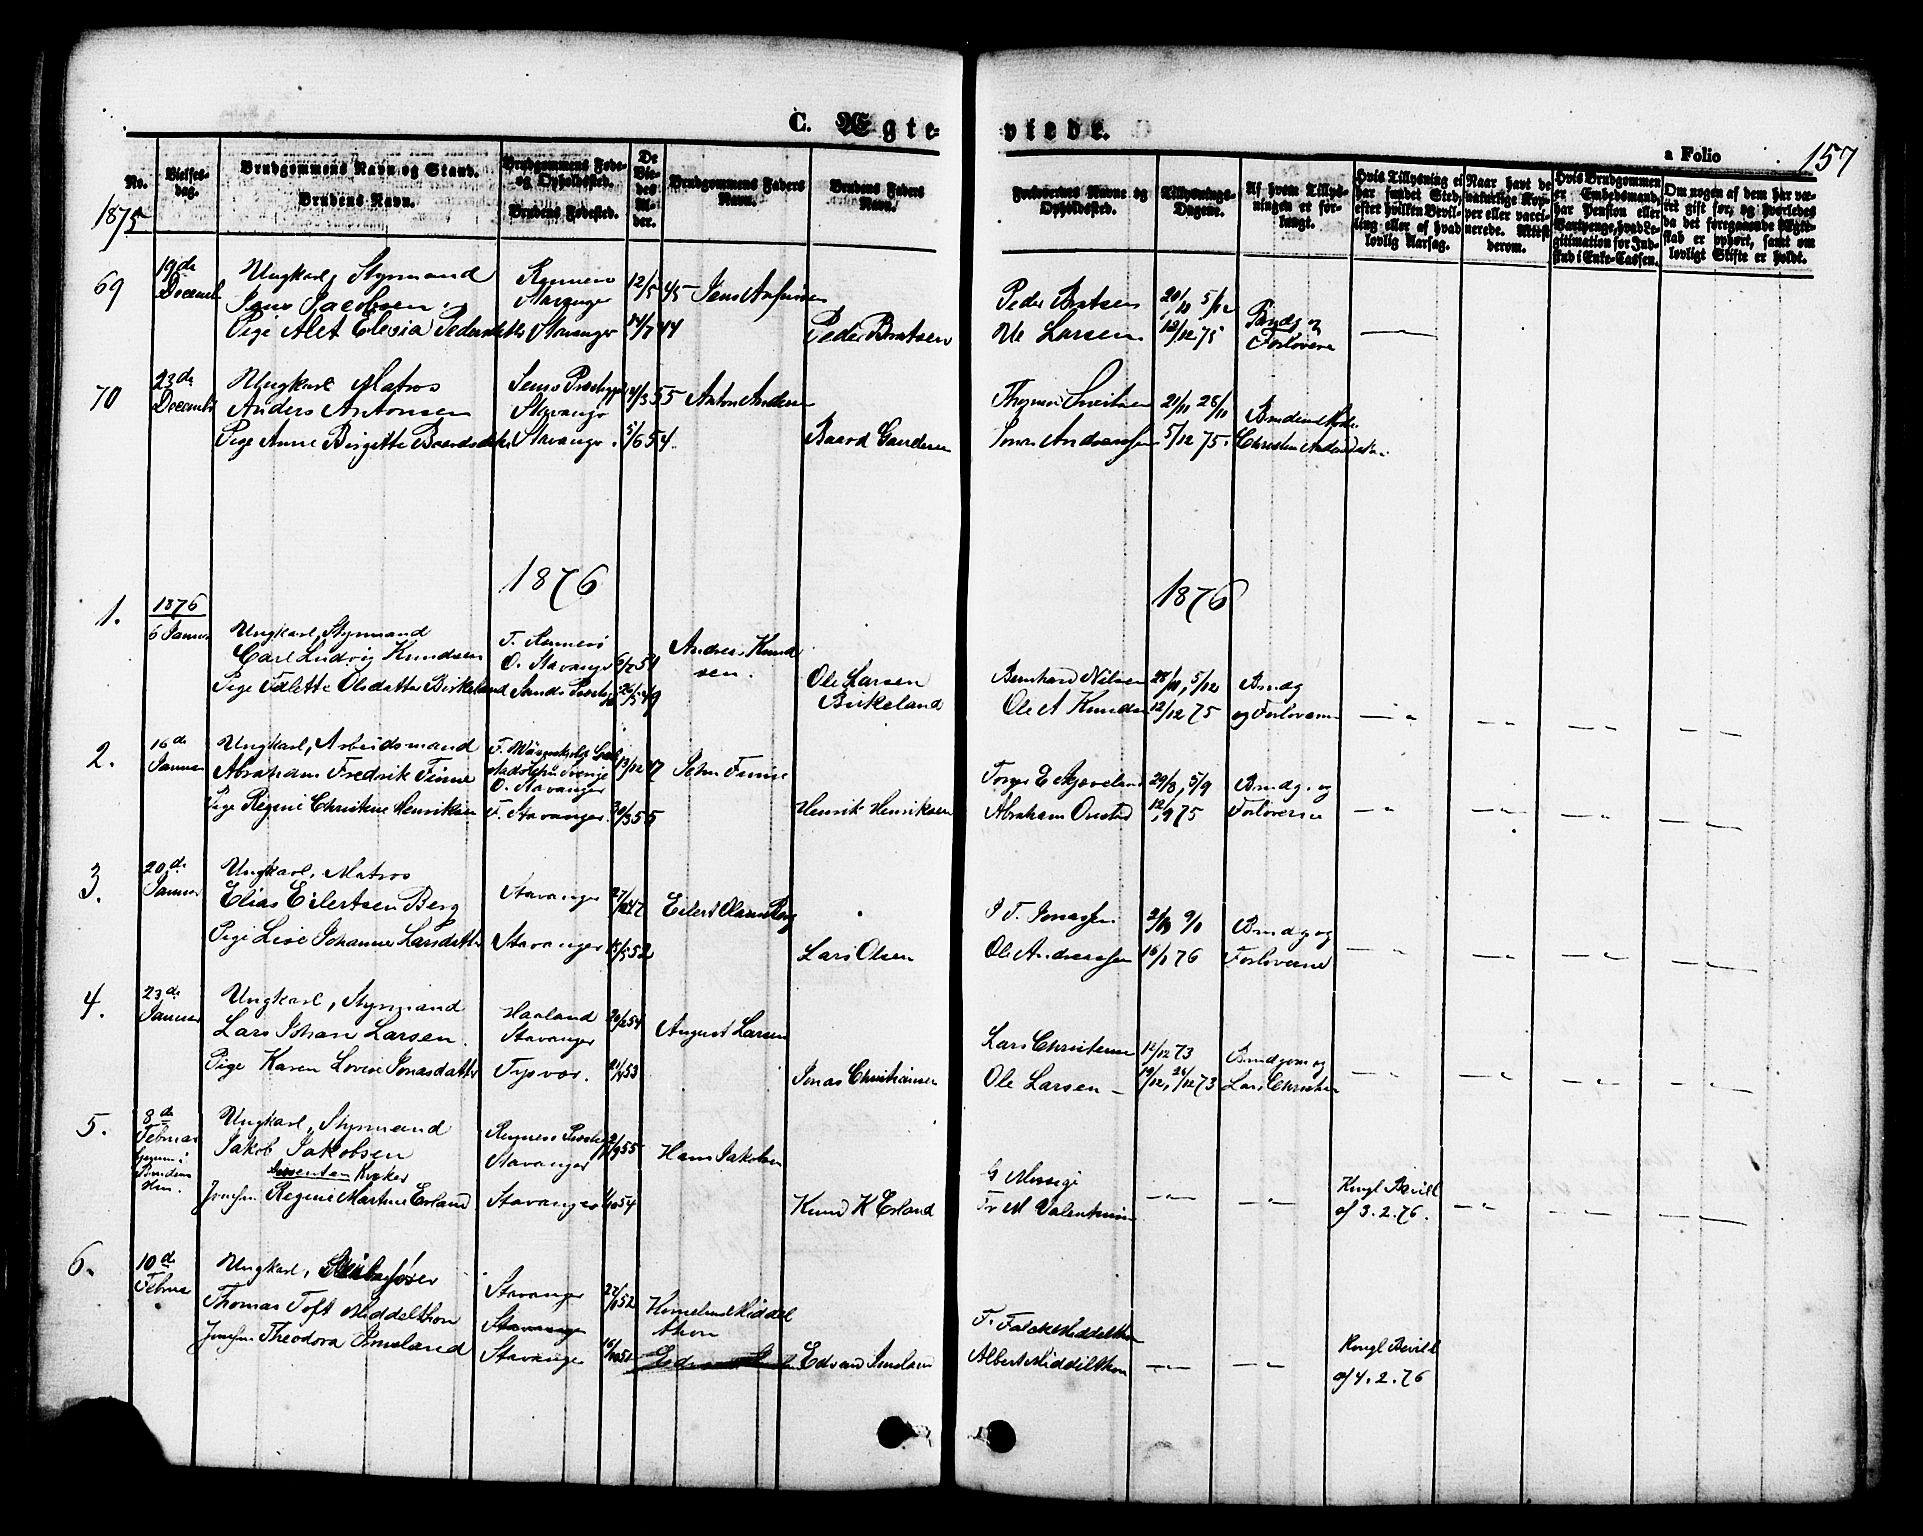 C. Ægteviede.
a Folio 157
No.
Vielses-dag.
Brudgommens Navn og Stand.
Brudens Navn.
Brudgommens Føde- og Opholdssted.
Brudens Fødested.
De Viedes Alder.
Brudgommens Faders Navn.
Brudens Faders Navn.
Forlovernes Navne og Opholdssted.
Tillysnings-Dagene.
Af hvem Tillysningen er forlangt.
Hvis Tillysning ei har fundet Sted, efter hvilken Bevilling eller af hvad lovlig Aarsag.
Naar havt de naturlige Kopper eller vaccinerede. Attest derom.
Hvis Brudgommen er Embedsmand, har Pension eller Vartpenge, hvad Legitimation for Indskud i Enke-Cassen.
Om nogen af dem har været gift før, og hvorledes da det foregaaende Ægteskab er ophørt, samt om lovligt Skifte er holdt.
1875
69 19de Decemb
Ungkarl, Styrmand
Jens Jacobsen
Pige Alet Elevia Pedersdtr
Stavanger 12/5 45
Stavanger 14/7 44
Peder Bertsen
Ole Larsen
5/12
12/12 75
Brudg og Forlovere
70 23de Decembr
Ungkarl Matros
Anders Antonsen
Pige Anne Birgitte Baardsdtr
Stavanger
Stavanger 5/6 54
Anton Andersen
Baard Gundersen
Jonas Andreassen
21/11 28/11
5/12 75
1876
1876
1. 1876
6 Januar
Ungkarl, Styrmand
Carl Ludvig Knudsen
Pige Talette Olsdatter Birkeland
F. Rennesø
O. Stavanger
Sands Prestegj
Andreas Knudsen.
Ole Larsen Birkeland
Bernhard Nilsen
Ole A Knudsen
28/11, 5/12
12/12 75
Brudg og Forloverne
2. 16de Januar
Ungkarl, Arbeidsmand
Abraham Fredrik Finne
Pige Regine Christine Henriksen
O. Stavanger 13/12 47
F. Stavanger 30/3 55
John Finne
Henrik Henriksen
29/8, 5/9
12/9 75
Brudg. og Forloverne
3. 20de Januar
Ungkarl, Matros
Elias Eilertsen Berg
Pige Lise Johanne Larsdatter
Stavanger
Stavanger
Eilert Olsen Berg
Lars Olsen
I T. Jonassen
Ole Andreassen
2/1 9/1
16/1 76
Brudg og Forloverne
4. 23de Januar
Ungkarl, Styrmand
Lars Johan Larsen
Pige Karen Lovise Jonasdatter
Haaland
Stavanger
Tysvær.
August Larsen
Jonas Christiansen
Lars Christensen
Ole Larsen
12/12 73
19/12, 26/12 73
Brudgom og Lars Christensen
5. 8de Februar
Ungkarl, Styrmand
Jakob Jakobsen
Dissenter Kvæker
Jomfru Regine Martine Erland
Stavanger
Stavanger
Hans Jakobsen
Knud K Erland
Fr M Valentinsen
Kongl Bevill
af 3.2.76.
6. 10de Februar
Ungkarl,
Thomas Toft Middelthon
Jomfru Theodora Imsland
Stavanger
Stavanger
Stavanger
Middelthon
Edvard Imsland
T. Falck Middelthon
Albert Middelthon
Kongl Bevill
af 4.2.76